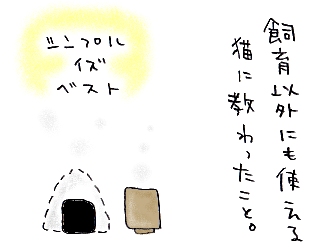 飼育以外にも使える
猫に教わったこと。
シンプル
イズ
ベスト